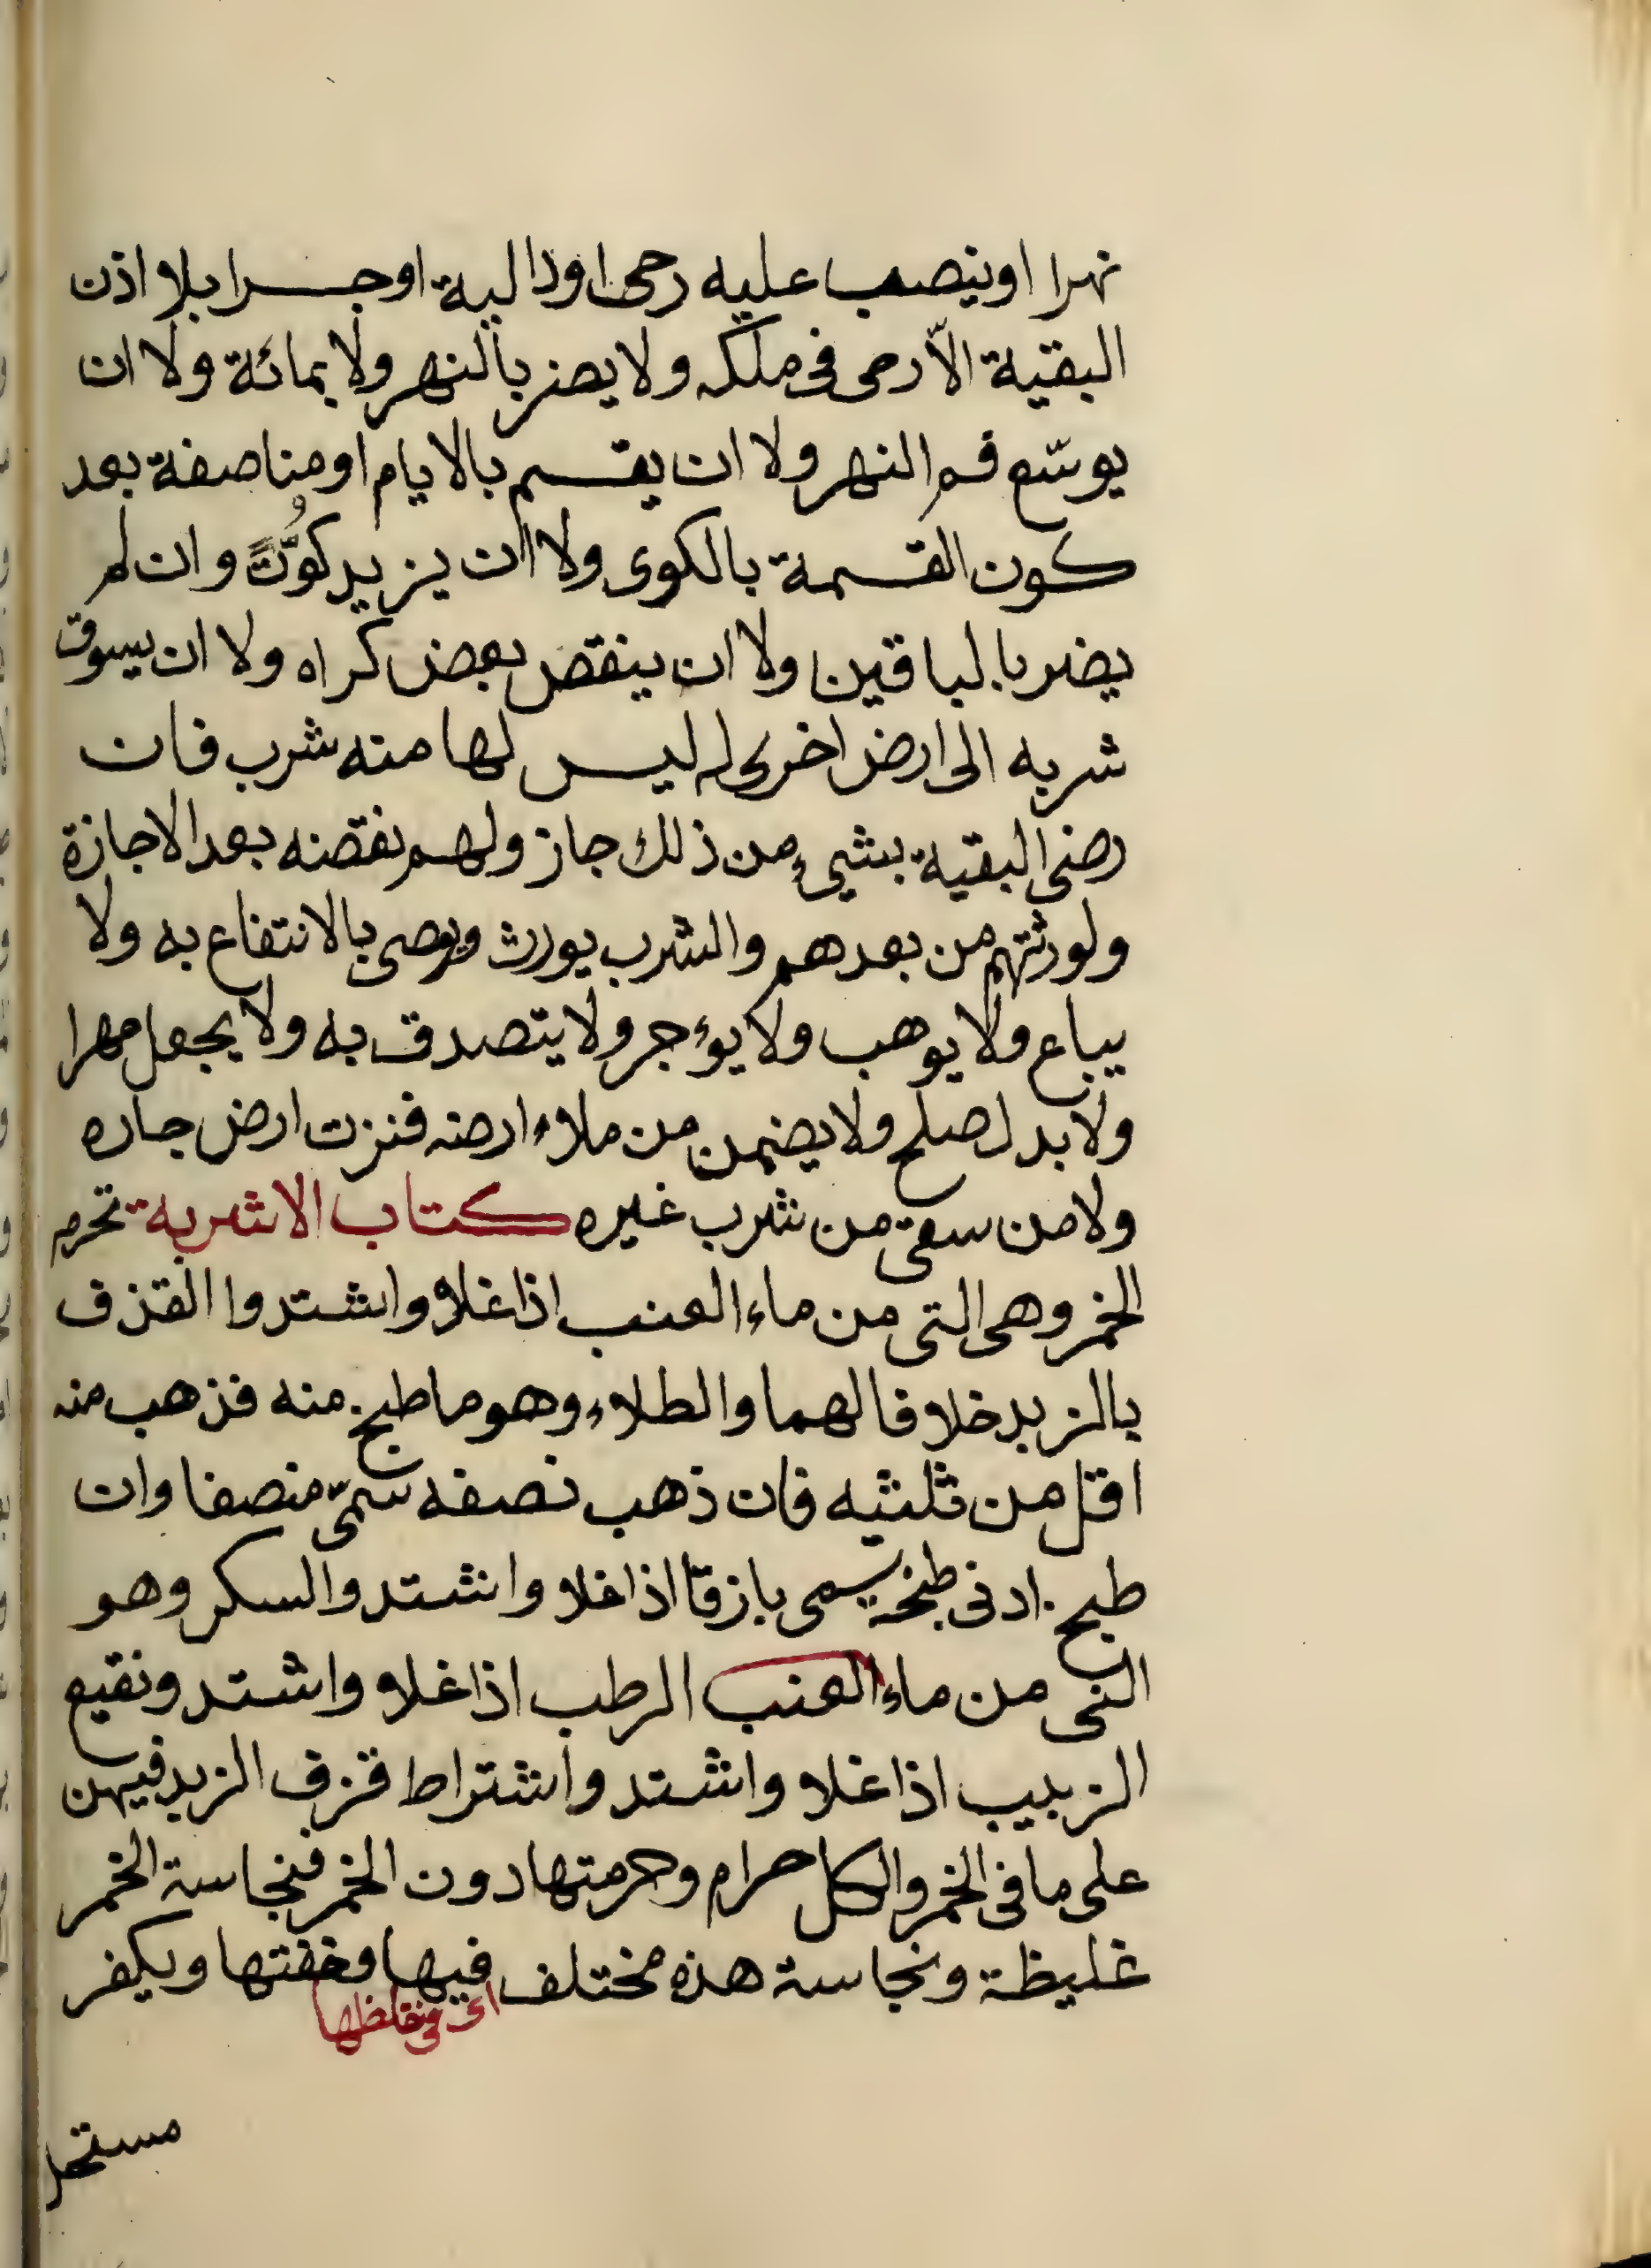 نهرا اوينصب عليه رحى اودالية اوجسرا بلا اذن
البقية الّارحى فى ملكه ولايضر بالنهر ولا بمائة ولا ان
يوسّع فم النهر ولا ان يقسم بالايام اومناصفة بعد
كون القسمة بالكوى ولا ان يزيد كوّة وان لم
يضر بالباقين ولا ان ينقص بعض كراه ولا ان يسوق
شربه الى ارض اخرى له ليس لها منه شرب فان
رضى البقية بشيء من ذلك جاز ولهم نقضه بعد الاجازة
ولورثتهم من بعدهم والشرب يورث ويوصى بالانتفاع به ولا
يباع ولا يوهب ولا يوءجر ولا يتصدق به ولا يجعل مهرا
ولا بدل صلح ولا يضمن من ملاء ارضه فنزت ارض جاره
ولا من سقى من شرب غيره كتاب الاشربة تحرم
الخمر وهى التى من ماء العنب اذا غلا واشتدوا القذف
بالزبد خلافا لهما والطلاء وهو ما طبخ منه فذهب منه
اقل من ثلثيه فان ذهب نصفه سمّى منصفا وان
طبخ ادنى طبخة يسمى بازقا اذا غلا واشتد والسكر وهو
النى من ماء العنب الرطب اذا غلا واشتد ونقيع
الزبيب اذا غلا واشتد واشتراط قزف الزبد فيهن
على ما فى الخمر والكل حرام وحرمتها دون الخمر فنجاسة الخمر
غليظة ونجاسة هذه مختلف فيها وخفتها ويكفر
اى فى
مستحل